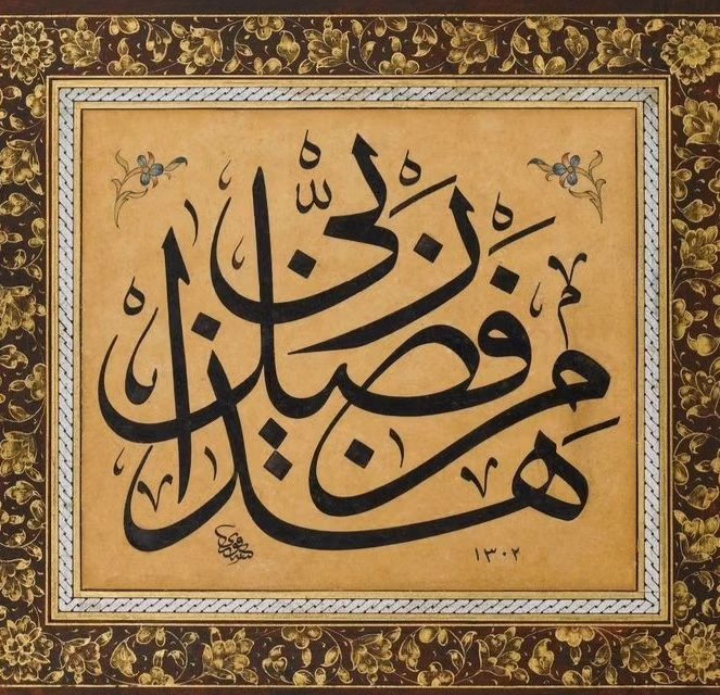 هذا من فضل ربي
١٣٠٢